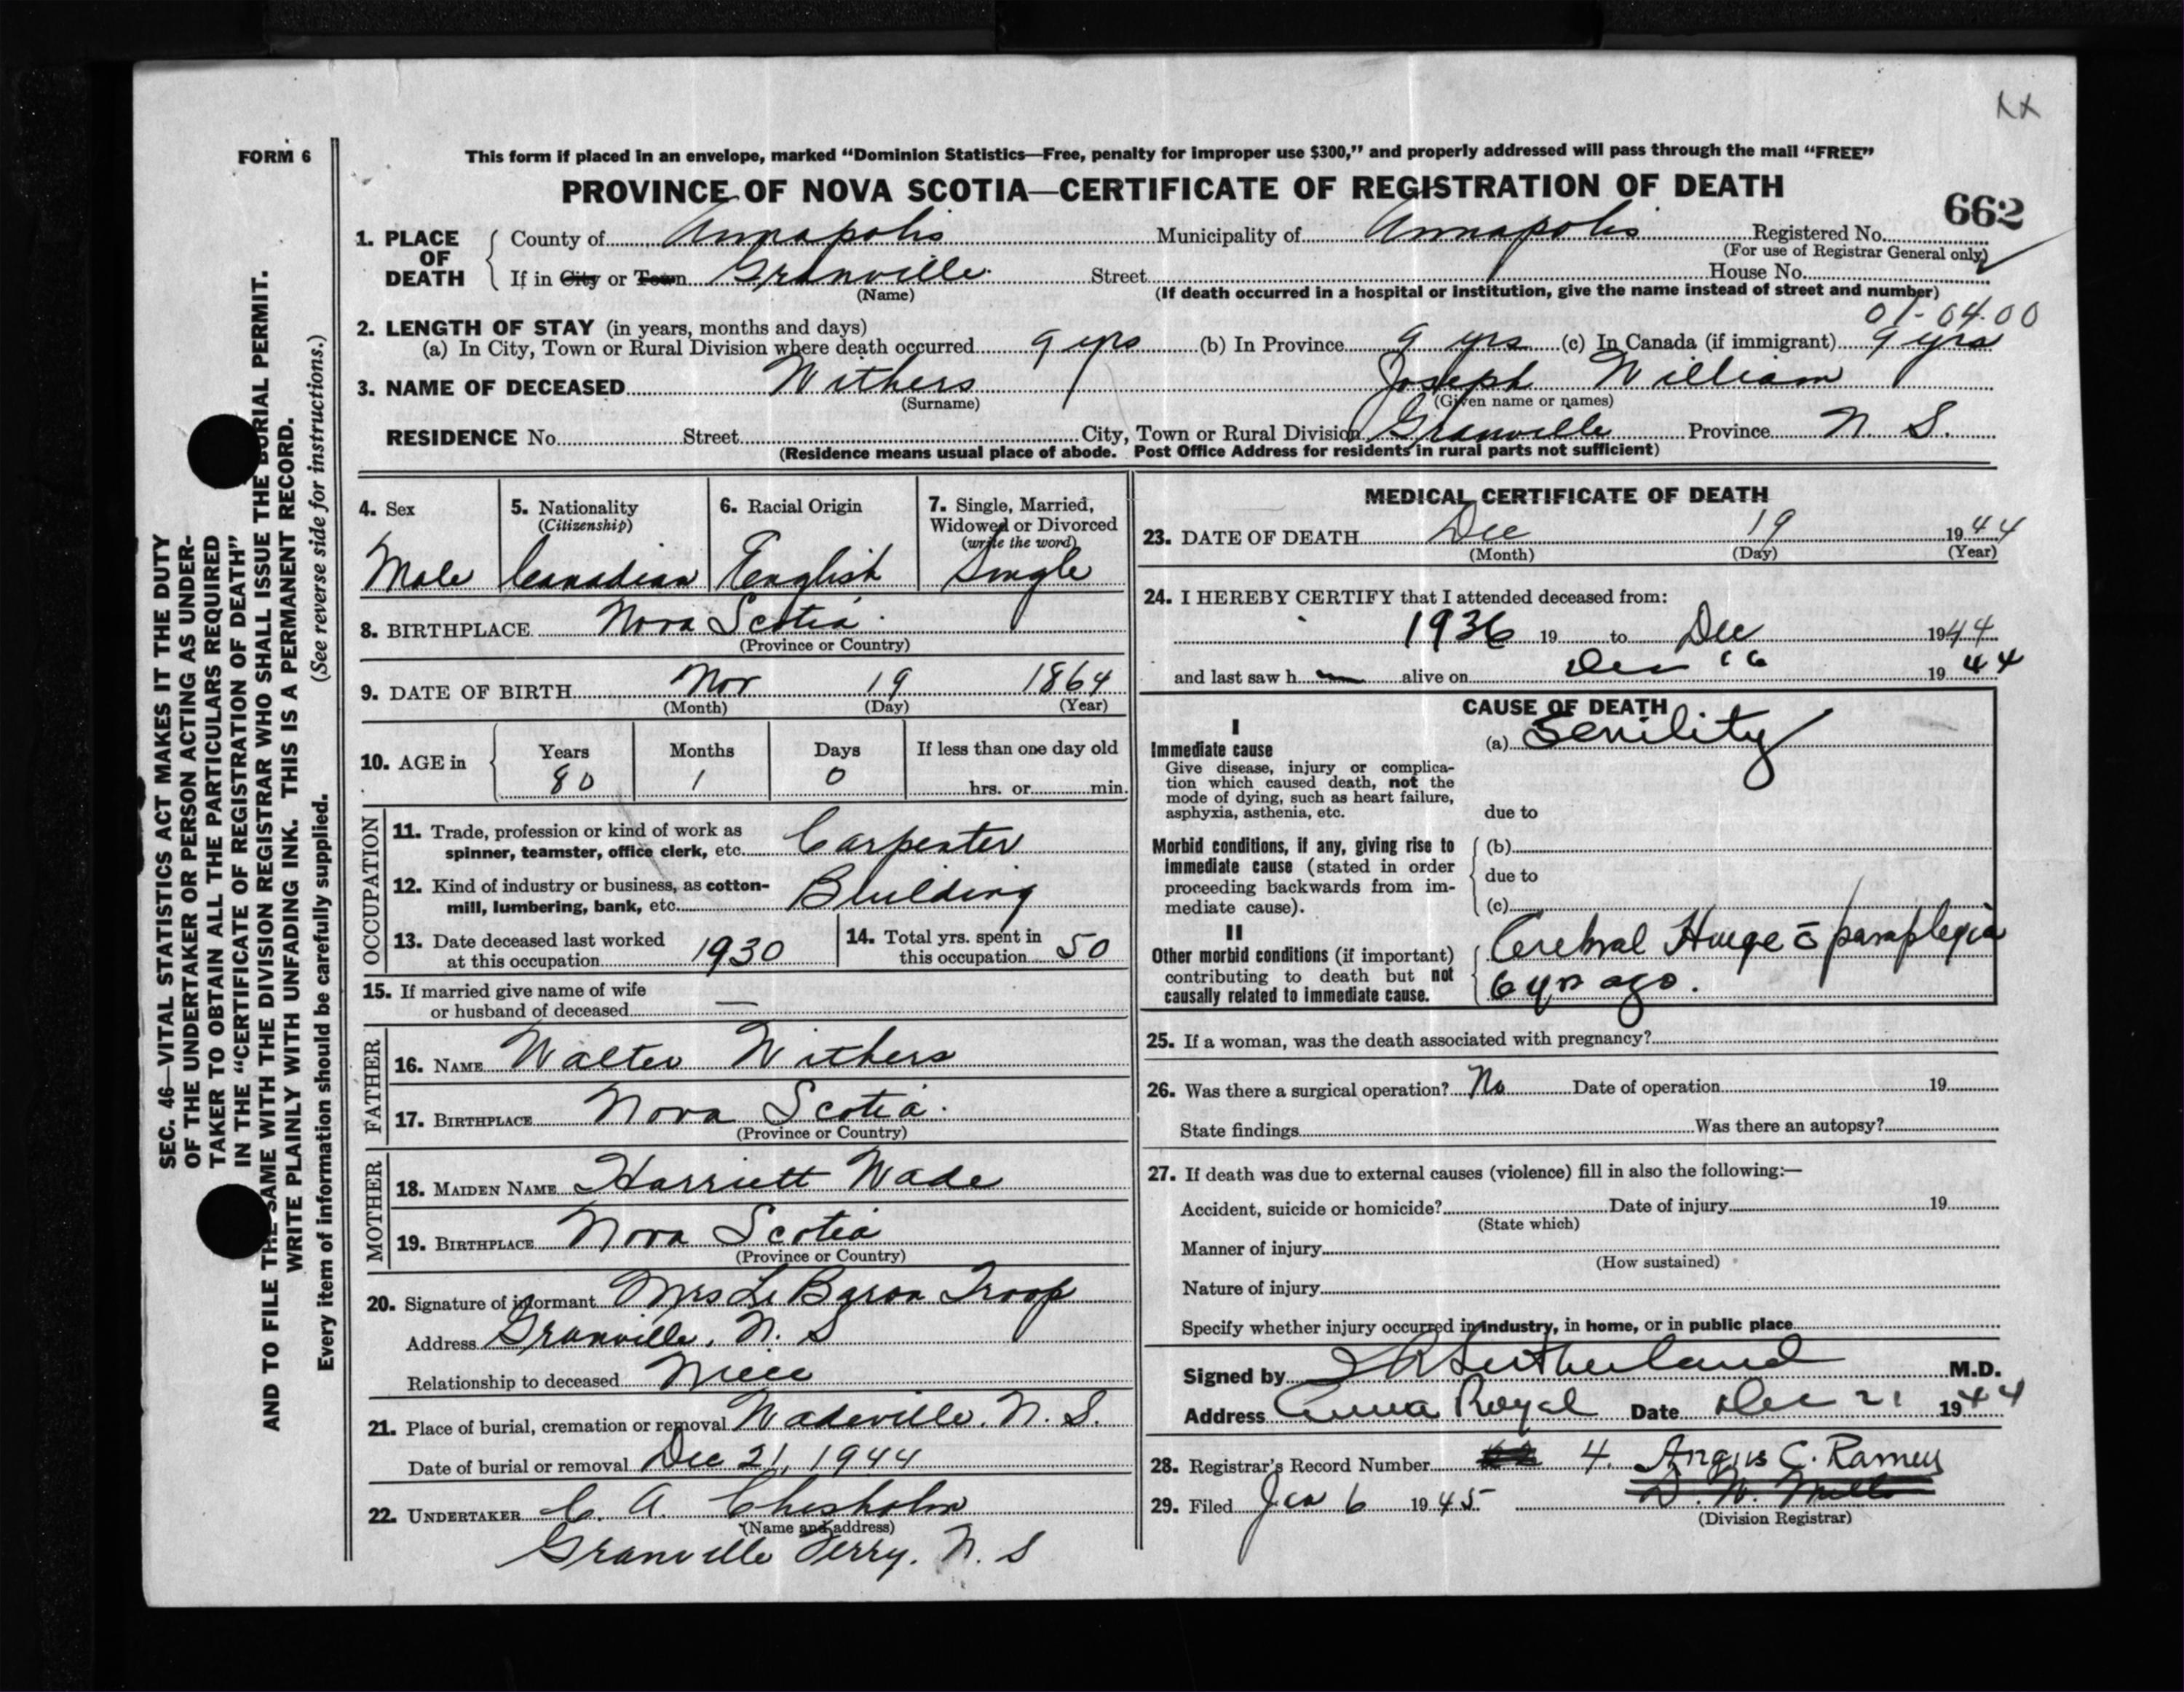 XX
FORM 6
This form if placed in an envelope, marked “Dominion Statistics—Free, penalty for improper use $300,” and properly addressed will pass through the mail “FREE”
PROVINCE OF NOVA SCOTIA—CERTIFICATE OF REGISTRATION OF DEATH
662
1. PLACE OF DEATH
County of Annapolis Municipality of Annapolis Registered No.
(For use of Registrar General only)
If in City or Town Granville Street House No.
(Name) (If death occurred in a hospital or institution, give the name instead of street and number)
01-04.00
2. LENGTH OF STAY (in years, months and days)
(a) In City, Town or Rural Division where death occurred 9 yrs (b) In Province 9 yrs (c) In Canada (if immigrant) 9 yrs
3. NAME OF DECEASED Withers Joseph William
(Surname) (Given name or names)
RESIDENCE No. Street City, Town or Rural Division Granville Province N. S.
(Residence means usual place of abode. Post Office Address for residents in rural parts not sufficient)
4. Sex
Male
5. Nationality
(Citizenship)
Canadian
6. Racial Origin
English
7. Single, Married, Widowed or Divorced
(write the word)
Single
8. BIRTHPLACE Nova Scotia
(Province or Country)
9. DATE OF BIRTH Nov 19 1864
(Month) (Day) (Year)
10. AGE in
Years Months Days If less than one day old
80 1 0 hrs. or min.
OCCUPATION
11. Trade, profession or kind of work as
spinner, teamster, office clerk, etc. Carpenter
12. Kind of industry or business, as cotton-
mill, lumbering, bank, etc. Building
13. Date deceased last worked
at this occupation 1930
14. Total yrs. spent in
this occupation 50
15. If married give name of wife
or husband of deceased —
FATHER
16. NAME Walter Withers
17. BIRTHPLACE Nova Scotia
(Province or Country)
MOTHER
18. MAIDEN NAME Harriett Wade
19. BIRTHPLACE Nova Scotia
(Province or Country)
20. Signature of informant Mrs Le Baron Troop
Address Granville, N. S
Relationship to deceased Niece
21. Place of burial, cremation or removal Wadeville, N. S.
Date of burial or removal Dec 21, 1944
22. UNDERTAKER C. A. Chesholm
(Name and address)
Granville Ferry. N. S
MEDICAL CERTIFICATE OF DEATH
23. DATE OF DEATH Dec 19 1944
(Month) (Day) (Year)
24. I HEREBY CERTIFY that I attended deceased from:
1936 19 to Dec 1944
and last saw h alive on Dec 16 1944
CAUSE OF DEATH
I
Immediate cause
Give disease, injury or complica-
tion which caused death, not the
mode of dying, such as heart failure,
asphyxia, asthenia, etc.
(a) Senility
due to
Morbid conditions, if any, giving rise to
immediate cause (stated in order
proceeding backwards from im-
mediate cause).
(b)
due to
(c)
II
Other morbid conditions (if important)
contributing to death but not
causally related to immediate cause.
Cerebral Hmge c̄ paraplegia
6 yrs ago.
25. If a woman, was the death associated with pregnancy?
26. Was there a surgical operation? No Date of operation 19
State findings Was there an autopsy?
27. If death was due to external causes (violence) fill in also the following:—
Accident, suicide or homicide? Date of injury 19
(State which)
Manner of injury
(How sustained)
Nature of injury
Specify whether injury occurred in industry, in home, or in public place
Signed by Sutherland M.D.
Address Anna Royal Date Dec 21 1944
28. Registrar's Record Number 4. Angus C. Ramey
29. Filed Jan 6 1945 D. W. Mills
(Division Registrar)
SEC. 46—VITAL STATISTICS ACT MAKES IT THE DUTY
OF THE UNDERTAKER OR PERSON ACTING AS UNDER-
TAKER TO OBTAIN ALL THE PARTICULARS REQUIRED
IN THE “CERTIFICATE OF REGISTRATION OF DEATH”
AND TO FILE THE SAME WITH THE DIVISION REGISTRAR WHO SHALL ISSUE THE BURIAL PERMIT.
WRITE PLAINLY WITH UNFADING INK. THIS IS A PERMANENT RECORD.
Every item of information should be carefully supplied. (See reverse side for instructions.)